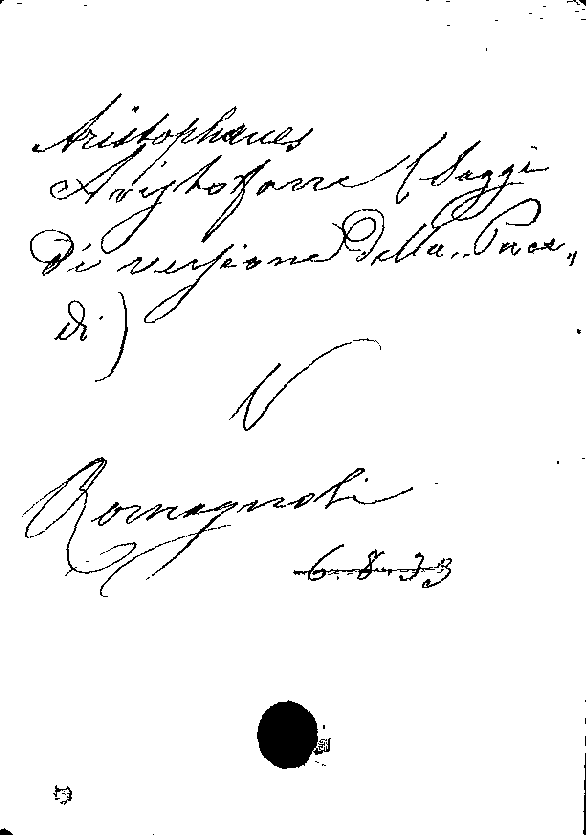 Aristophanes
Aristofane (Saggi
di versione della „Pace„
di)
V
Romagnoli
6.8.33